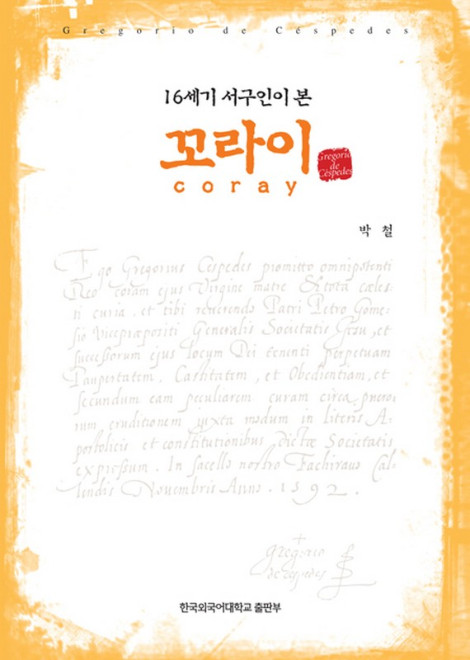 Gregorio de Céspedes
16세기 서구인이 본
꼬라이
coray
Gregorio
de
Céspedes
박 철
Ego Gregorius Cespedes promitto omnipotenti
Deo coram ejus Virgine matre & tota cæles-
ti curia, et tibi reverendo Patri Petro Gome-
sio Vicepræposito Generalis Societatis Jesu, et
successorum ejus locum Dei tenenti perpetuam
Paupertatem, Castitatem, et Obedientiam, et
secundum eam peculiarem curam circa puero-
rum eruditionem juxta modum in literis A-
postolicis et constitutionibus dictæ Societatis
expressum. In sacello nostro Fachiraus Cal-
lendis Novembris Anno. 1592.
gregorio
de cespedes
한국외국어대학교 출판부